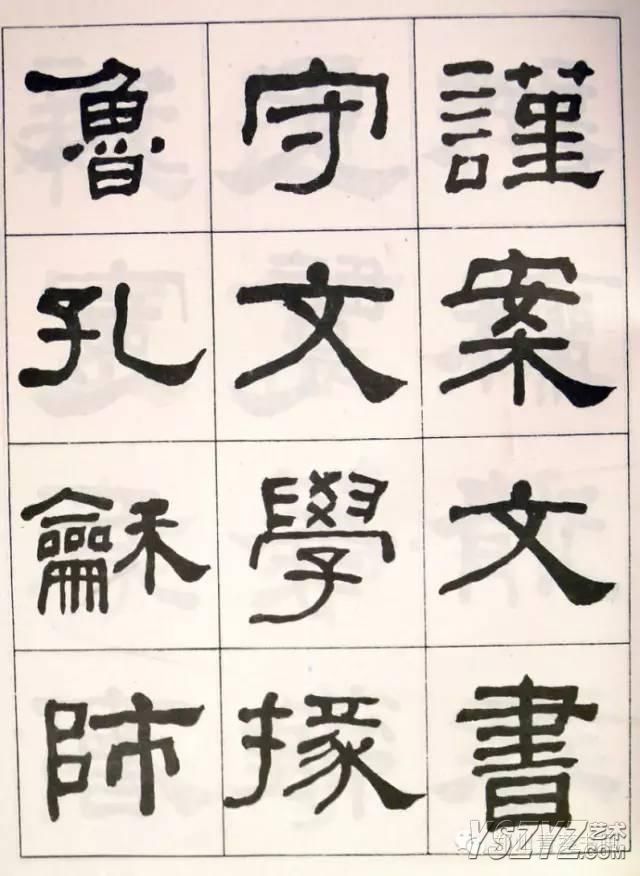 謹案文書
守文學掾
魯孔龢師
YSZYZ艺术